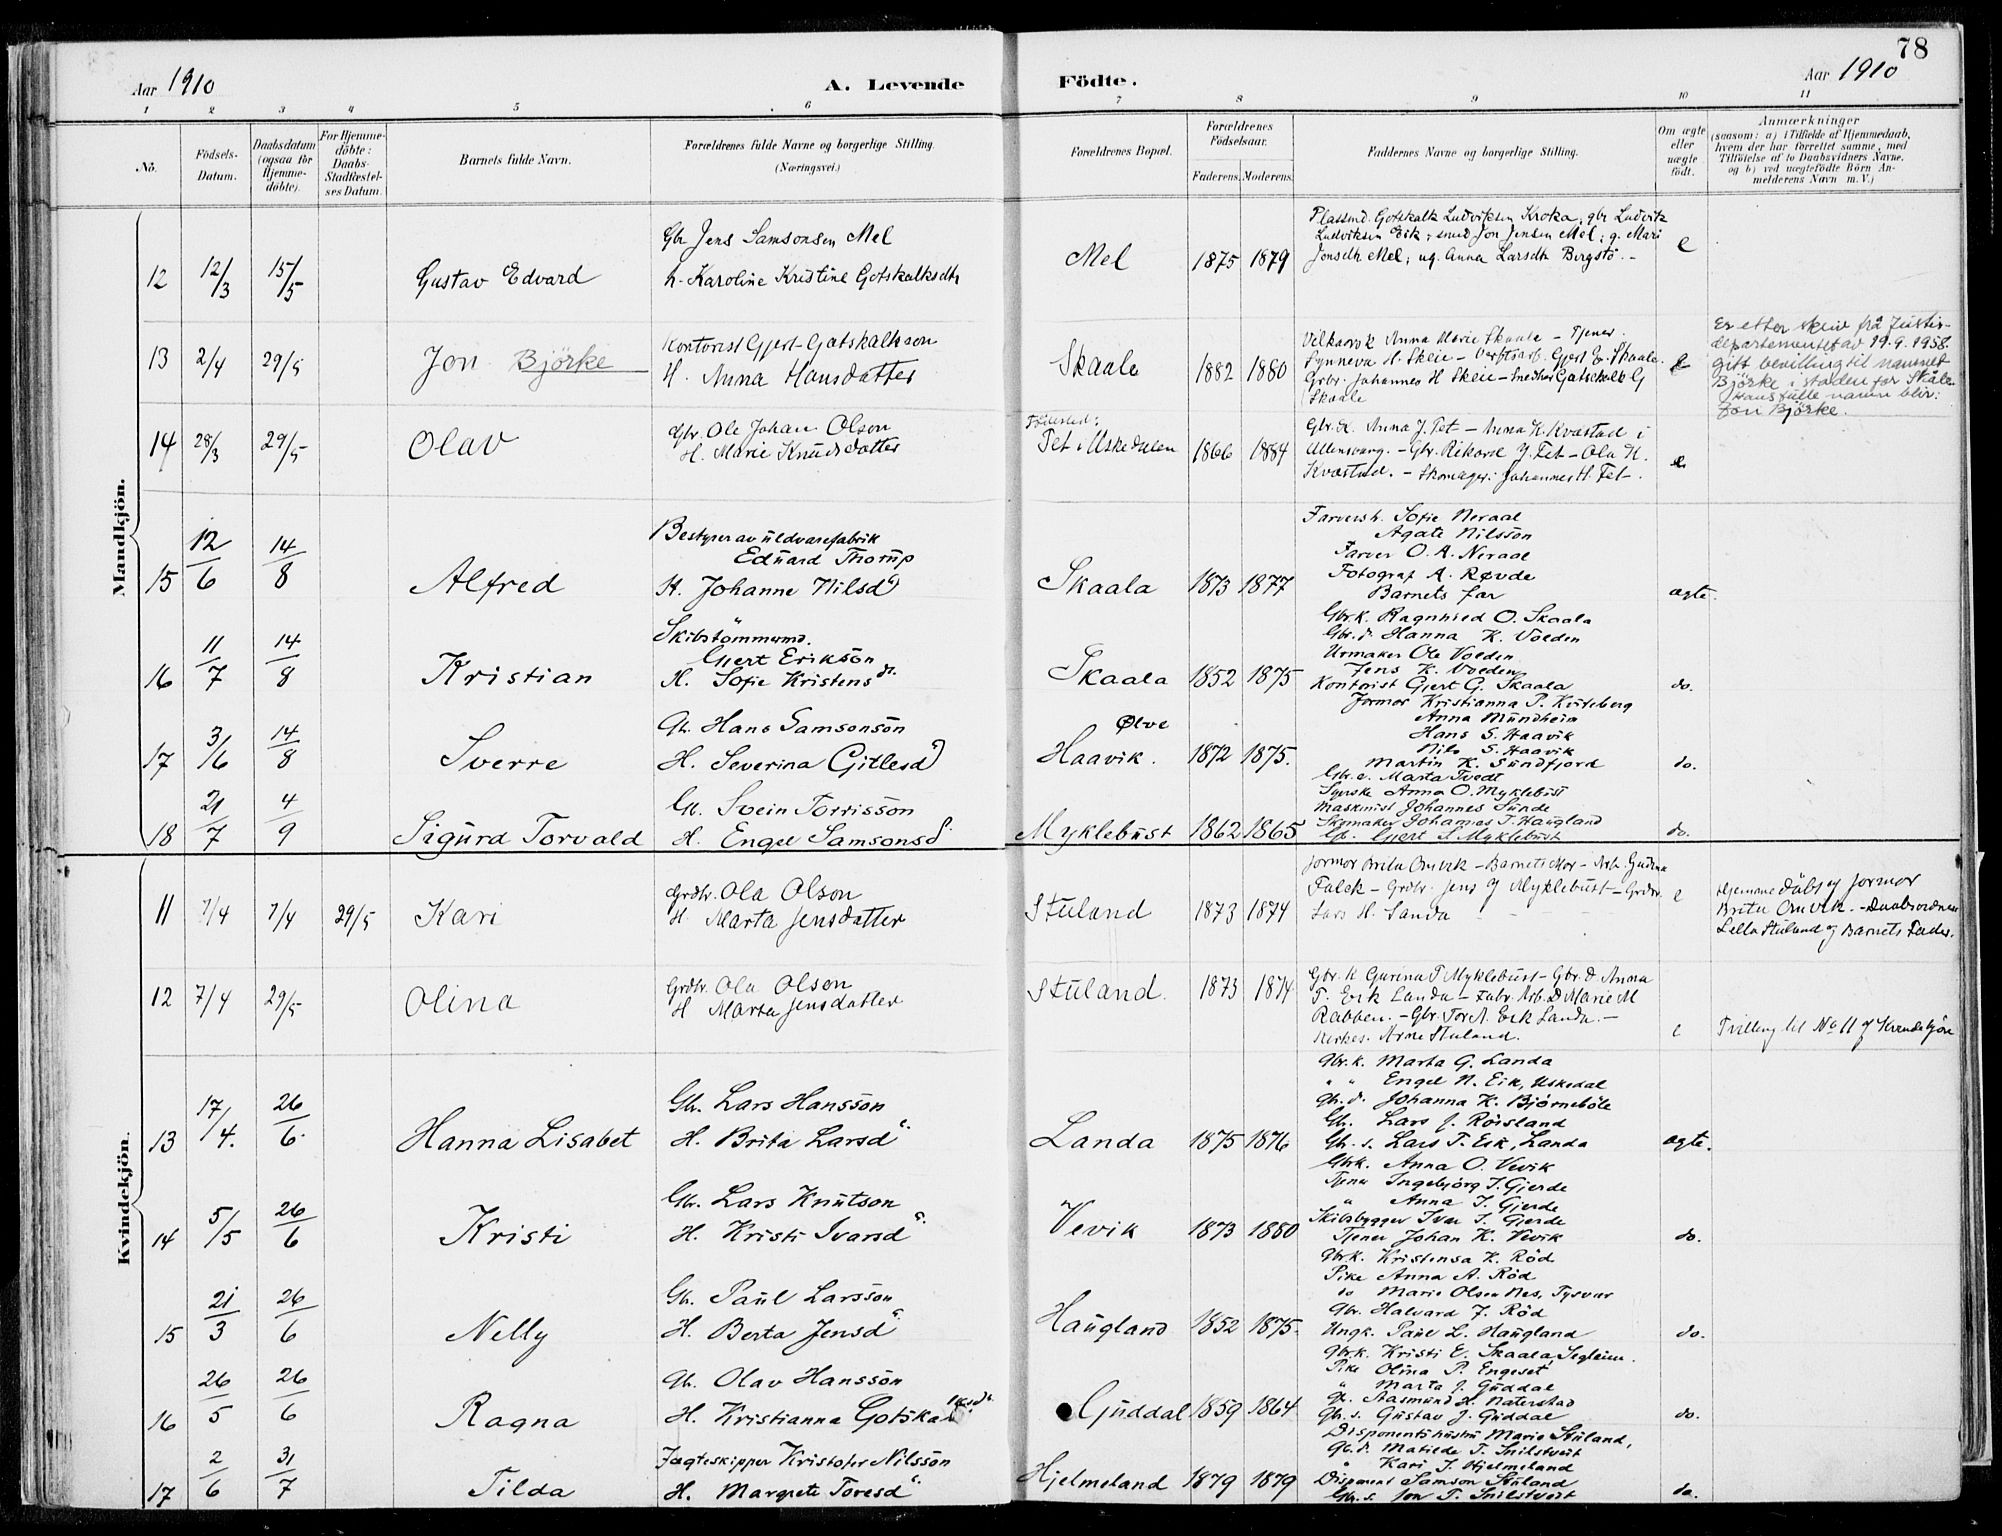 78
Aar 1910 A. Levende Födte. Aar 1910
1 2 3 4 5 6 7 8 9 10 11
No.
Födsels-
Datum.
Daabsdatum
(ogsaa for
Hjemme-
döbte).
For Hjemme-
döbte:
Daabs-
Stadfæstel-
ses Datum.
Barnets fulde Navn.
Forældrenes fulde Navne og borgerlige Stilling.
(Næringsvei.)
Forældrenes Bopæl.
Forældrenes
Födselsaar.
Faderens. Moderens.
Faddernes Navne og borgerlige Stilling.
Om ægte
eller
uægte
födt.
Anmærkninger
(saasom: a) i Tilfælde af Hjemmedaab,
hvem der har forrettet samme, med
Tilföielse af to Daabsvidners Navne,
og b) ved uægtefödte Börn An-
melderens Navn m. V.)
Mandkjön.
12 12/3 15/5 Gustav Edvard
Gbr Jens Samsonsen Mel
h. Karoline Kristine Gotskalksdtr
Mel 1875 1879
Plassmd. Gotskalk Ludviksen Kroka; gbr Ludvik
Ludviksen Eik; smed Jon Jensen Mel; g. Mari
Jonsdtr Mel; ug. Anna Larsdtr Bergstö. -
e
13 2/4 29/5 Jon Björke
Kontorist Gjert Gotskalkson
H. Anna Hansdatter
Skaale 1882 1880
Anna Marie Skaale - Tjener
Synneva H. Skeie - Gjert E. Skaale.
Grbr. Johannes H Skeie - Snedker Gotskalk G
Skaale
e
Er etter skriv frå Justis-
departementet av 19.9.1958.
gitt bevilling til navnet
Björke i staden for Skåle.
Hans fulle namn blir:
Jon Björke.
14 28/3 29/5 Olav
Gbr. Ole Johan Olson
H. Marie Knudsdatter
Födested:
Fet i Uskedalen 1866 1884
Gbr.k. Anna J. Fet - Anna H. Kvæstad i
Ullensvang. - Gbr. Rikard J. Fet - Ola H.
Kvæstad. - Skomager: Johannes H. Fet -.
e
15 12/6 14/8 Alfred
Bestyrer av uldvarefabrik
Eduard Thorup
H. Johanne Nilsd.
Skaala 1873 1877
Farversh. Sofie Neraal
Agate Nilsson
Farver O. A. Neraal
Fotograf A. Røvde
Barnets far
ægte.
16 11/7 14/8 Kristian
Skibstömmermd.
Gjert Erikson
H. Sofie Kristensdr.
Skaala 1852 1875
Gbr.k. Ragnhild O. Skaala
Gbr.d. Hanna K. Voeden
Urmaker Ole Voeden
Jens K. Voeden
Kontorist Gjert G. Skaala
do.
17 3/6 14/8 Sverre
Gb. Hans Samsonson
H. Severina Gitlesd.
Ølve
Haavik. 1872 1875.
Jormor Kristianna P.
Anna Mundheim
Hans S. Haavik
Nils S. Haavik
Martin K. Sundfjord
do.
18 21/7 4/9 Sigurd Torvald
Gb. Svein Torrisson
H. Engel Samsonsd.
Myklebust 1862 1865
Gbr.e. Marta Tvedt
Syerske Anna O. Myklebust
Maskinist Johannes Sunde
Skomaker Johannes T. Haugland
Gb. Gjert S. Myklebust
do.
Kvindekjön.
11 7/4 7/4 29/5 Kari
Grdbr. Ola Olson
H. Marta Jensdatter
Stuland 1873 1874
Jormor Brita Omvik - Barnets Mor - Arb. Gudm
Falck - Grdbr. Jens J Myklebust - Grdbr.
Lars H. Landa
e
Hjemmedöbt af Jormor
Brita Omvik. - Daabsvidner
Lella Stuland og Barnets Fader.
12 7/4 29/5 Olina
Grdbr. Ola Olson
H Marta Jensdatter
Stuland. 1873 1874
Gbr. k Gurina T Myklebust - Gbr. d Anna
T. Eik Landa - Fabr. Arb. D Marie M
Rabben. - Gbr. Tor A. Eik Landa. -
Kirkes. Arne Stuland.
e Tvilling til No 11 af Kvindekjön
13 17/4. 26/6. Hanna Lisabet
Gb. Lars Hansson
H. Brita Larsd.
Landa 1875 1876
Gbr.k. Marta G. Landa
" " Engel N. Eik, Uskedal
Gb.d. Johanna K. Björneböle
Gb. Lars J. Röisland
Gb. s. Lars T. Eik, Landa
ægte.
14 5/5 26/6 Kristi
Gb. Lars Knutson
H. Kristi Ivarsd.
Vevik 1873 1880
Gbrk. Anna O. Vevik
Tjener Ingebjörg I. Gjerde
" Anna I. Gjerde
Skibsbygger Ivar I. Gjerde
Tjener Johan K. Vevik
do.
15 21/3 26/6 Nelly
Gb. Paul Larsson
H. Berta Jensd.
Haugland 1852 1875.
Gbr.k. Kristensa K. Röd
Pike Anna A. Röd
do Marie Olsen Nes, Tysvær
Gbr. Halvard J. Röd
Ungk. Paul L. Haugland
do.
16 26/5 26/6 Ragna
Gb. Olav Hansson
H. Kristianna Gotskalksd.
Guddal 1859 1864
Gbr.k. Kristi E. Skaala, Segleim.
Pike Olina P. Engeset
" Marta J. Guddal
Gb. Aasmund H. Naterstad
Gb. s. Gustav J. Guddal
do.
17 2/6 31/7 Tilda
Jægteskipper Kristofer Nilsson
H. Margrete Toresd.
Hjelmeland 1879 1879
Disponentshustru Marie Stuland,
Gb.d. Matilde T. Snilstveit
" Kari J. Hjelmeland
Disponent Samson Stuland
Gb. s. Jon T. Snilstveit
do.